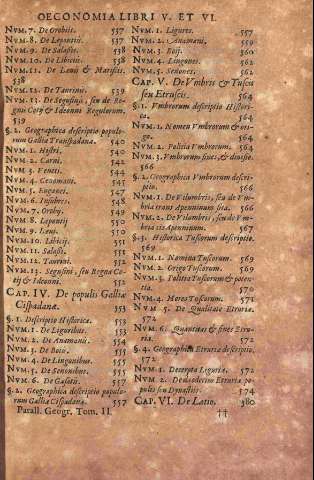 OECONOMIA LIBRI V. ET VI.
NVM. 7. De Orobiis. 537
NVM. 8. De Lepontiis. 537
NVM. 9. De Salassis. 538
NVM. 10. De Libiciis. 538
NVM. 11. De Leuis & Maricis.
538
NVM. 12. De Taurinis. 539
NVM. 13. De Segusinis, seu de Regnis
Cotij & Ideonno Regulorum.
539
§. 2. Geographica descriptio populorum
Galliæ Transpadanæ. 540
NVM. 1. Histri. 540
NVM. 2. Carni. 542
NVM. 3. Veneti. 544
NVM. 4. Cenomani. 545
NVM. 5. Euganei. 547
NVM. 6. Insubres. 548
NVM. 7. Oroby. 549
NVM. 8. Lepontij 550
NVM. 9. Leui. 550
NVM. 10. Libicij. 551
NVM. 11. Salassi. 551
NVM. 12. Taurini. 552
NVM. 13. Segusini, seu Regna Cotij
& Ideonni 552
CAP. IV. De populis Galliæ
Cispadanæ. 553
§. 1. Descriptio Historica. 553
NVM. 1. De Liguribus. 553
NVM. 2. De Anamanis 554
NVM. 3. De Bois. 555
NVM. 4. De Lingonibus 555
NVM. 5. De Senonibus. 555
NVM. 6. De Galatis. 557
§. 2. Geographica descriptio populorum
Galliæ Cispadanæ. 557
Parall. Geogr. Tom. II.
NVM. 1. Ligures. 557
NVM. 2. Anamani. 559
NVM. 3. Boij. 560
NVM. 4. Lingones. 562
NVM. 5. Senones. 562
CAP. V. De Vmbris & Tuscis
seu Etruscis. 564
§. 1. Vmbrorum descriptio Historica.
564
NVM. 1. Nomen Vmbrorum & origo.
564
NVM. 2. Politia Vmbrorum. 564
NVM. 3. Vmbrorum situs, &
566
§. 2. Geographica Vmbrorum descriptio.
566
NVM. 1. De Vilumbris, seu de Vmbria
trans Apenninum 566
NVM. 2. De Vilumbris, seu de Vmbria
cis Apenninum. 567
§. 3. Historica Tuscorum descriptio.
569
NVM. 1. Nomina Tuscorum. 569
NVM. 2. Origo Tuscorum. 569
NVM. 3. Politia Tuscorum & potentia.
570
NVM. 4. Mores Tuscorum. 571
NVM. 5. De Qualitate Etruriæ.
572
NVM. 6. Quantitas & fines Etruriæ.
572
§. 4. Geographica Etruriæ descriptio.
572
NVM. 1. Decerpta Liguriæ. 572
NVM. 2. De duodecim Etruriæ populis
seu Dynastiis. 574
CAP. VI. De Latio. 580
††